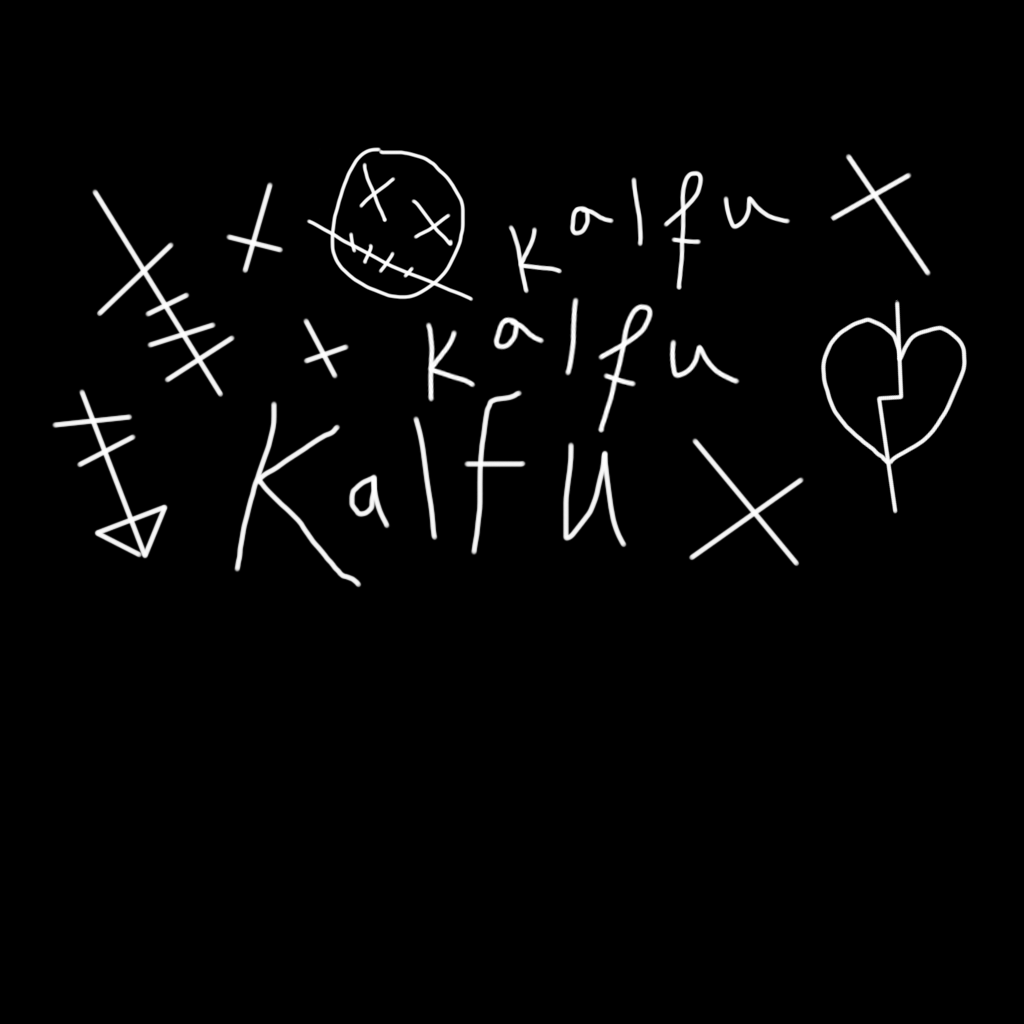 kalfu
kalfu
Kalfu